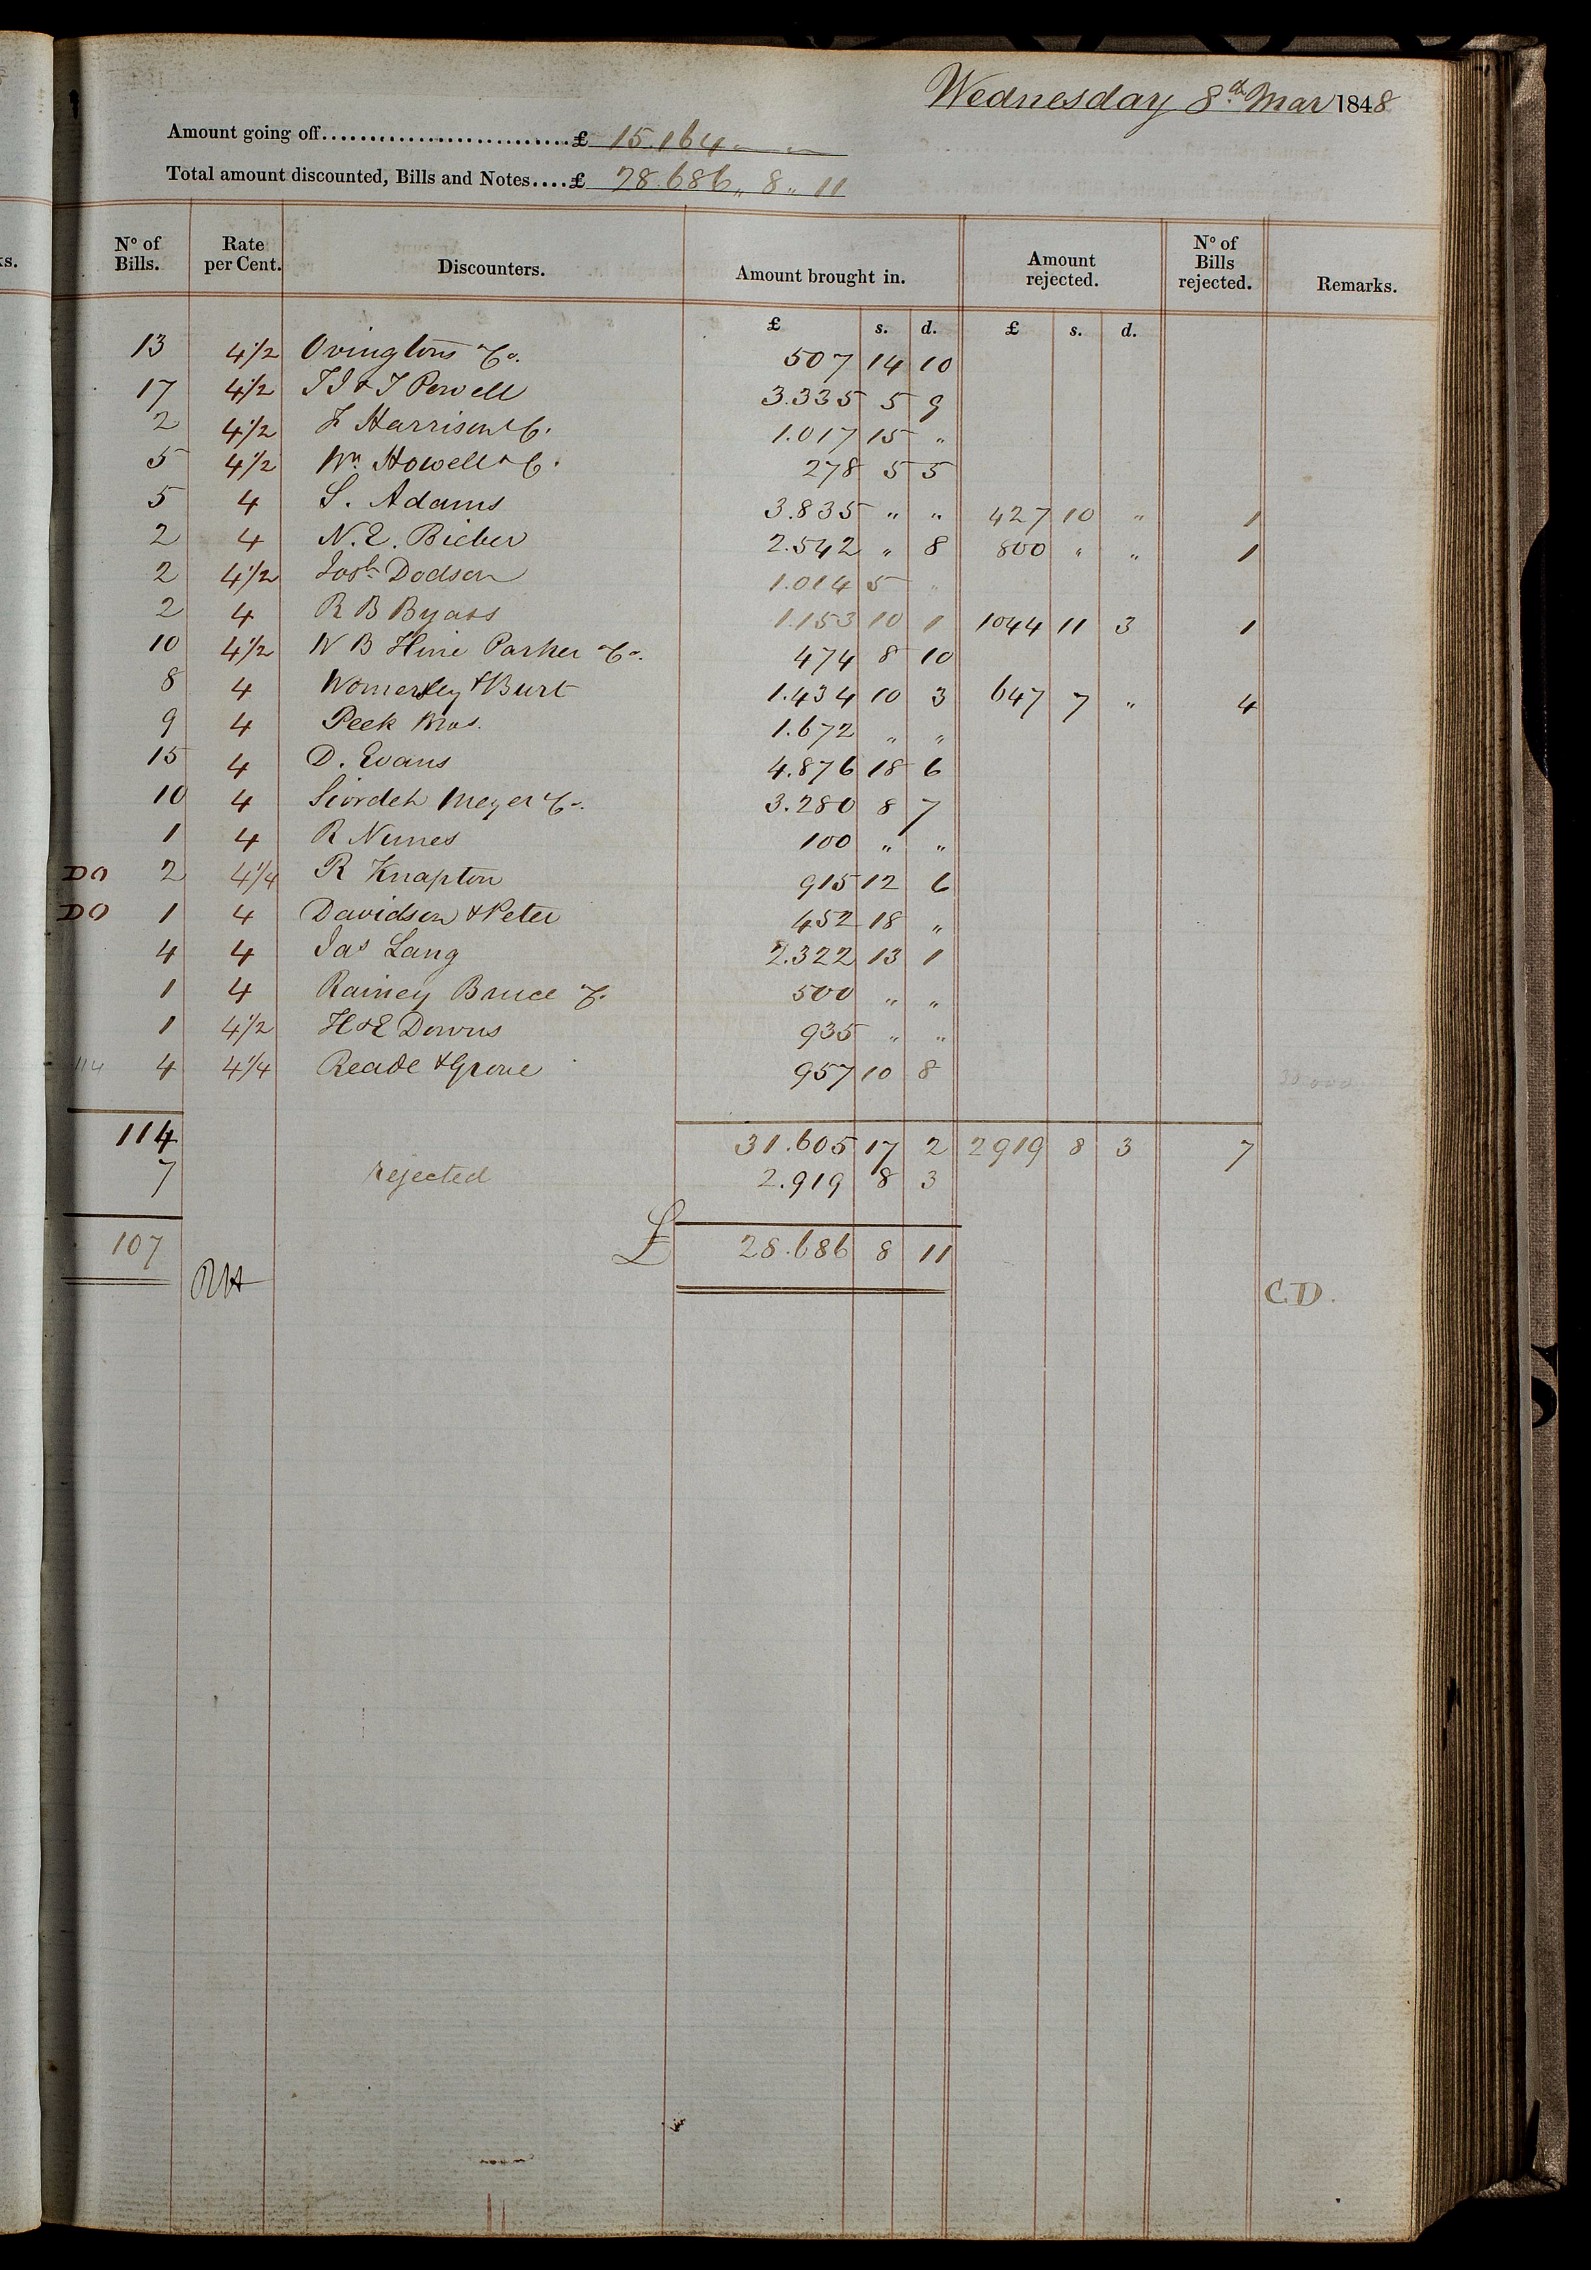 Wednesday 8th Mar 1848
Amount going off..........................£ 15.164 " "
Total amount discounted, Bills and Notes....£ 28.686 " 8 " 11
ks.
No of Bills. Rate per Cent. Discounters. Amount brought in. Amount rejected. No of Bills rejected. Remarks.
£ s. d. £ s. d.
13 4 1/2 Ovingtons & Co. 507 14 10
17 4 1/2 T J & T Powell 3.335 5 9
2 4 1/2 Harrison & C. 1.017 15 "
5 4 1/2 Wm Howell & C. 278 5 5
5 4 S. Adams 3.835 " " 427 10 " 1
2 4 N. E. Bieber 2.542 " 8 800 " " 1
2 4 1/2 Josh Dodson 1.014 5 "
2 4 R B Byass 1.153 10 1 1044 11 3 1
10 4 1/2 W B Hine Parker & Co. 474 8 10
8 4 Womersley & Burt 1.434 10 3 647 7 " 4
9 4 Peek Bros. 1.672 " "
15 4 D. Evans 4.876 18 6
10 4 Siordet Meyer & Co. 3.280 8 7
1 4 R Nunes 100 " "
DO 2 4 1/4 R Knapton 915 12 6
DO 1 4 Davidson & Peter 452 18 "
4 4 Jas Lang 2.322 13 1
1 4 Rainey Bruce & C. 500 " "
1 4 1/2 H & E Downs 935 " "
114 4 4 1/4 Reade & Grove 957 10 8
114 31.605 17 2 2919 8 3 7
7 rejected 2.919 8 3
107 £ 28.686 8 11
C.D.